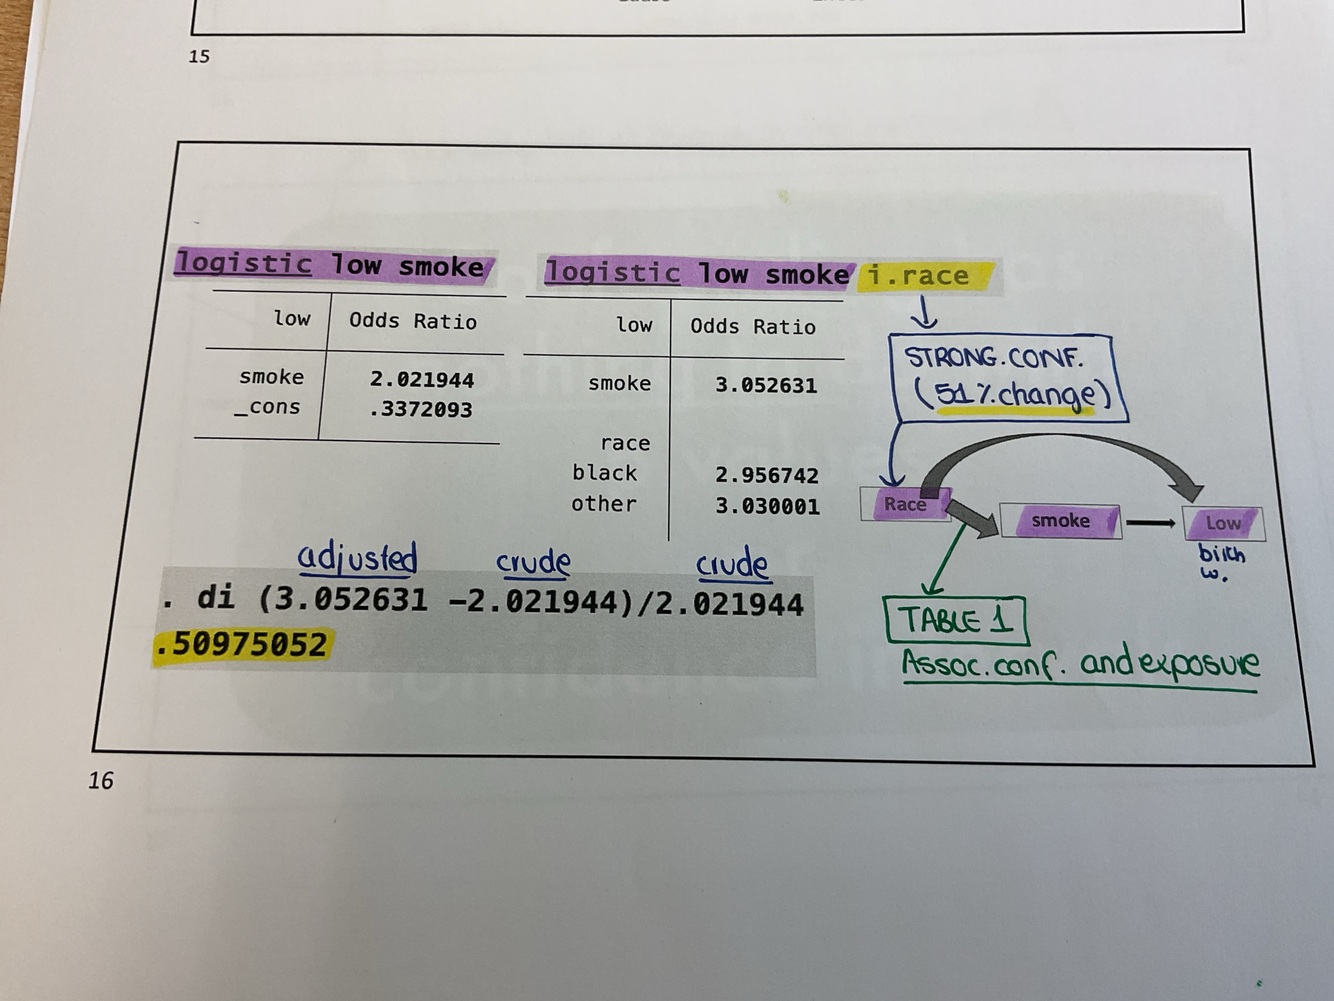 15
logistic low smoke
low Odds Ratio
smoke 2.021944
_cons .3372093
logistic low smoke i.race
low Odds Ratio
smoke 3.052631
race
black 2.956742
other 3.030001
STRONG.CONF.
(51%.change)
Race
smoke
Low
birth
w.
TABLE 1
Assoc.conf. and exposure
adjusted crude crude
. di (3.052631 -2.021944)/2.021944
.50975052
16